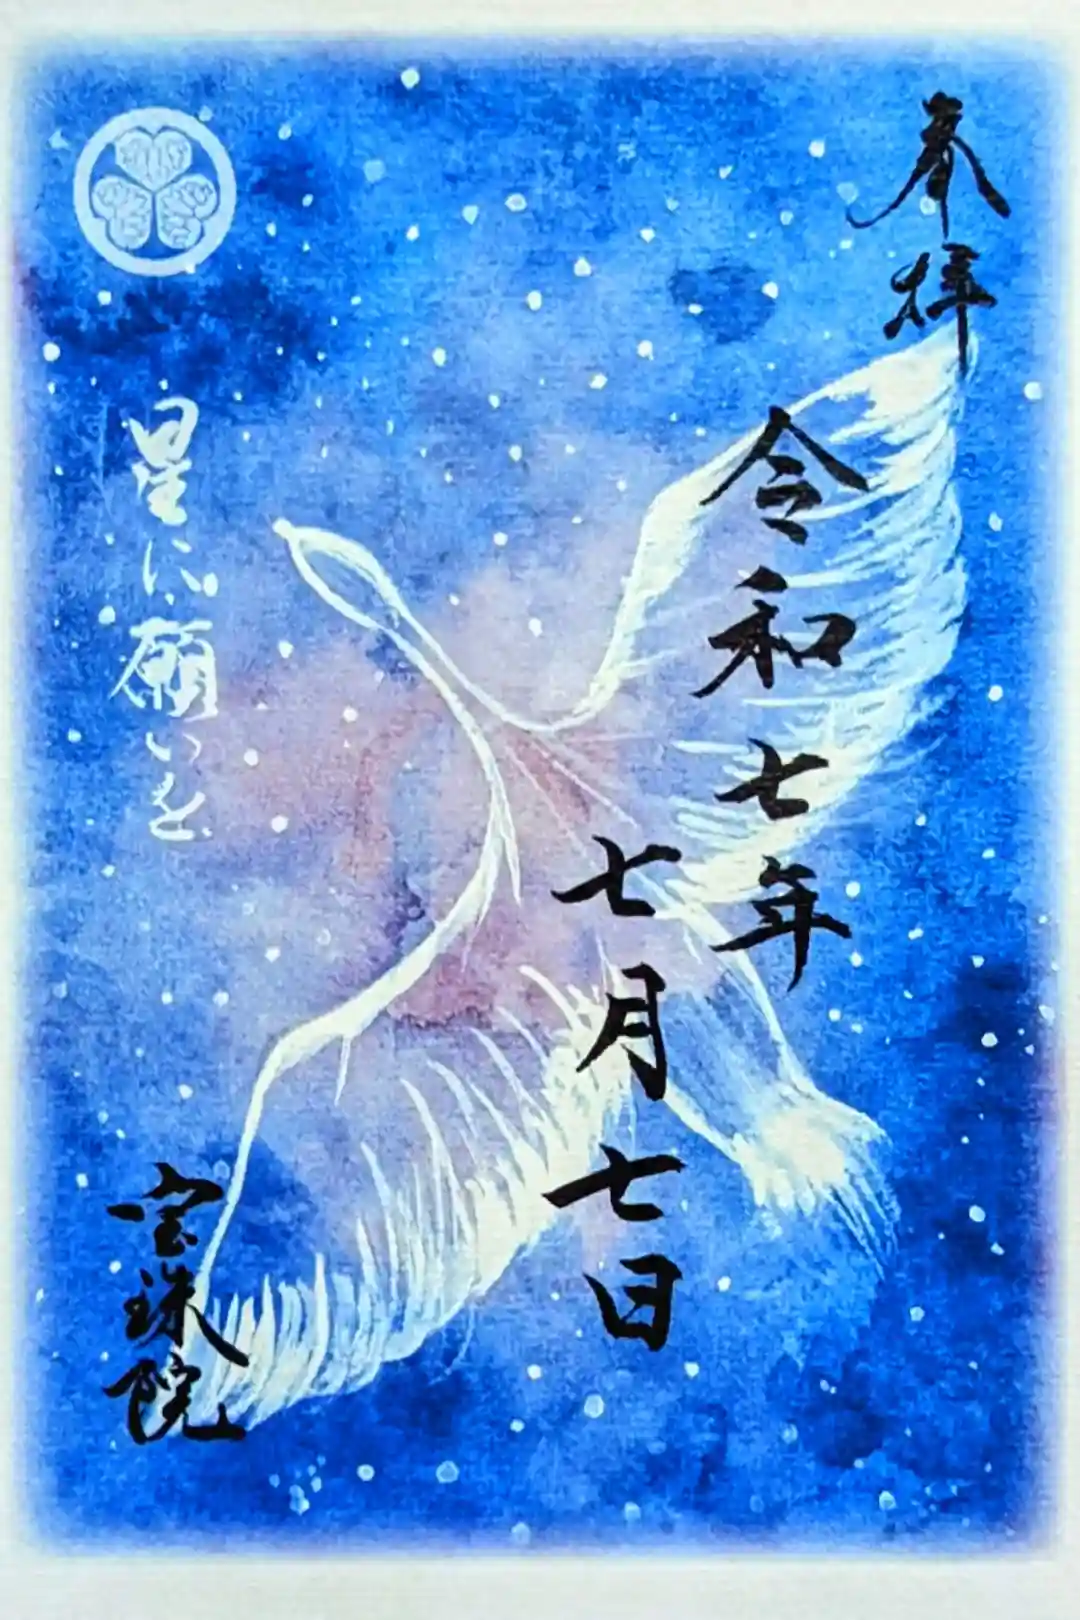 奉拝
令和七年
七月七日
星に願いを
宝珠院